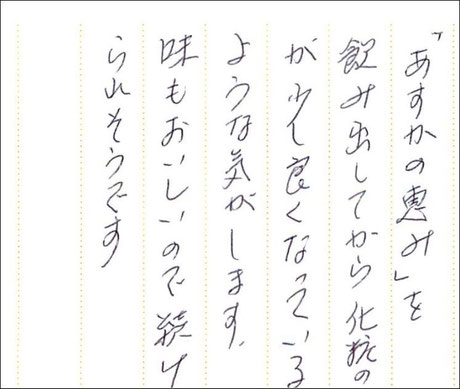 「あすかの恵み」を
飲み出してから化粧の
が少し良くなっている
ような気がします。
味もおいしいので続け
られそうです